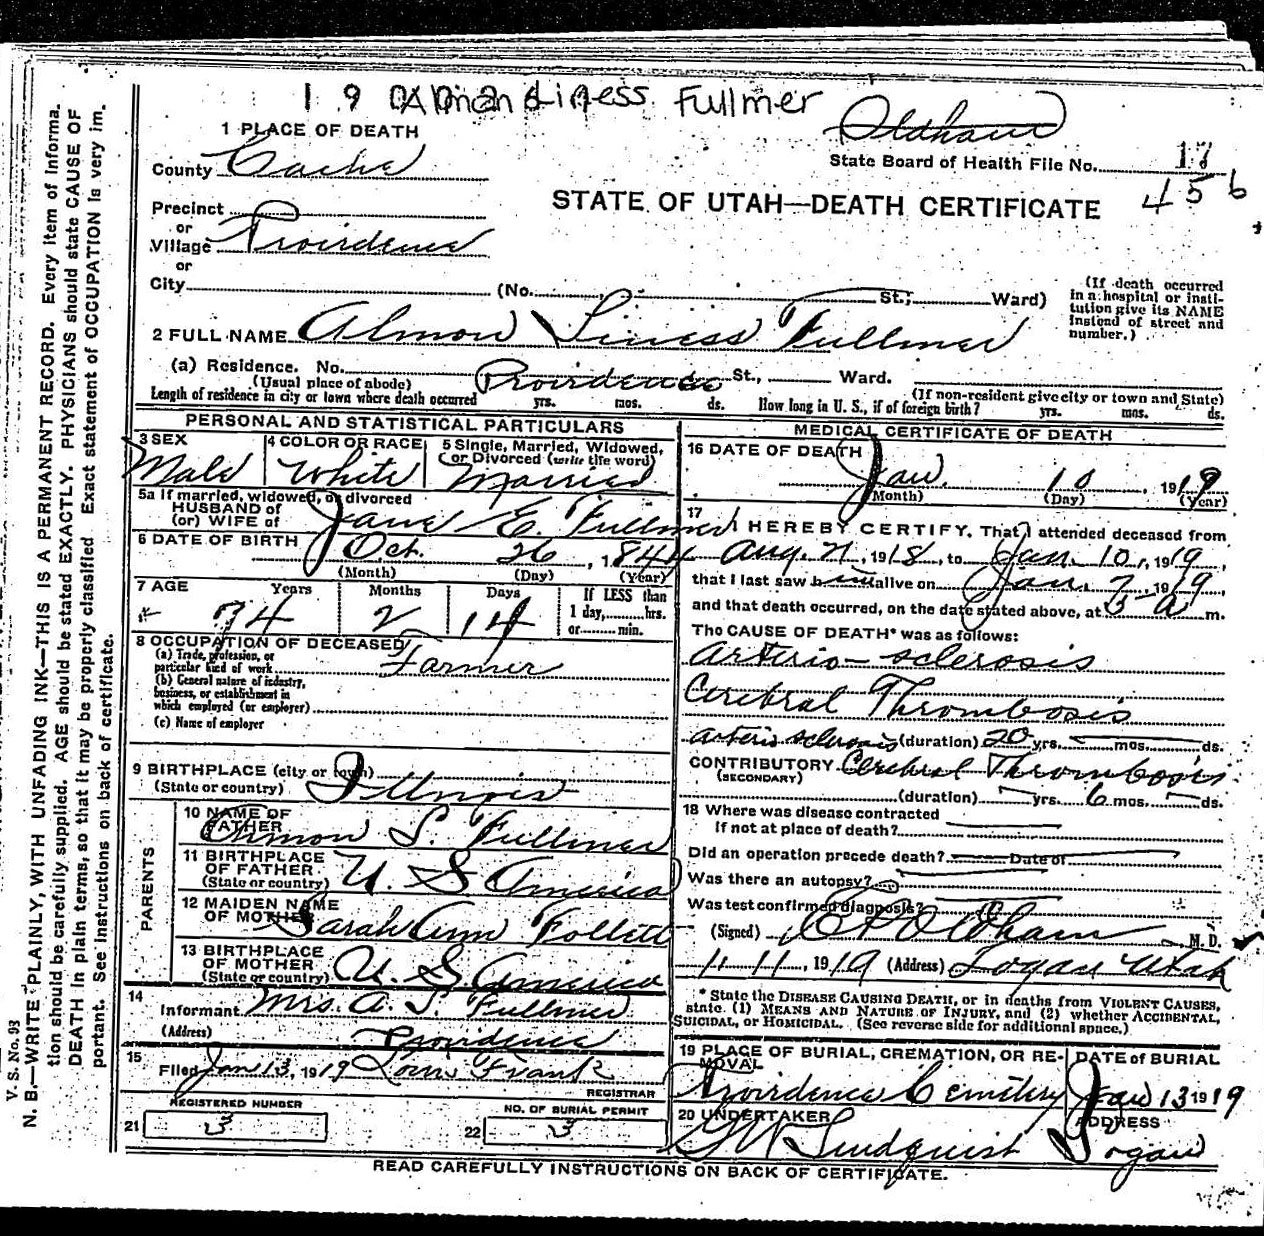 Alman Liness Fullmer
Oldham
1 PLACE OF DEATH
County Cache
State Board of Health File No. 17
456
STATE OF UTAH—DEATH CERTIFICATE
Precinct
or
Village Providence
or
City (No. St.; Ward)
(If death occurred in a hospital or insti-
tution give its NAME
instead of street and
number.)
2 FULL NAME Almon Liness Fullmer
(a) Residence. No. Providence St., Ward.
(Usual place of abode) (If non-resident give city or town and State)
Length of residence in city or town where death occurred yrs. mos. ds. How long in U. S., if of foreign birth? yrs. mos. ds.
PERSONAL AND STATISTICAL PARTICULARS
3 SEX 4 COLOR OR RACE 5 Single, Married, Widowed,
or Divorced (write the word)
Male White Married
5a If married, widowed, or divorced
HUSBAND of
(or) WIFE of Jane E. Fullmer
6 DATE OF BIRTH Oct. 26, 1844
(Month) (Day) (Year)
7 AGE Years Months Days If LESS than
1 day, hrs.
or min.
74 2 14
8 OCCUPATION OF DECEASED
(a) Trade, profession, or
particular kind of work Farmer
(b) General nature of industry,
business, or establishment in
which employed (or employer)
(c) Name of employer
9 BIRTHPLACE (city or town)
(State or country) Illinois
PARENTS
10 NAME OF
FATHER Almon L. Fullmer
11 BIRTHPLACE
OF FATHER
(State or country) U. S America
12 MAIDEN NAME
OF MOTHER Sarah Ann Follett
13 BIRTHPLACE
OF MOTHER
(State or country) U. S America
14
Informant Mrs. A. L. Fullmer
(Address) Providence
15
Filed Jan 13, 1919 Louis Frank
REGISTRAR
REGISTERED NUMBER
21 3
NO. OF BURIAL PERMIT
22 3
MEDICAL CERTIFICATE OF DEATH
16 DATE OF DEATH
Jan. 10, 1919
(Month) (Day) (Year)
17
I HEREBY CERTIFY, That I attended deceased from
Aug. 21, 1918, to Jan. 10, 1919,
that I last saw him alive on Jan. 7, 1919,
and that death occurred, on the date stated above, at 5 a m.
The CAUSE OF DEATH* was as follows:
Arterio-sclerosis
Cerebral Thrombosis
Arterio sclerosis (duration) 20 yrs. mos. ds.
CONTRIBUTORY Cerebral Thrombosis
(SECONDARY)
(duration) yrs. 6 mos. ds.
18 Where was disease contracted
If not at place of death?
Did an operation precede death? Date of
Was there an autopsy?
Was test confirmed diagnosis?
(Signed) Oldham M. D.
11, 1919 (Address) Logan Utah
* State the DISEASE CAUSING DEATH, or in deaths from VIOLENT CAUSES,
state (1) MEANS AND NATURE OF INJURY, and (2) whether ACCIDENTAL,
SUICIDAL, or HOMICIDAL. (See reverse side for additional space.)
19 PLACE OF BURIAL, CREMATION, OR RE-
MOVAL DATE of BURIAL
Providence Cemetery Jan 13 1919
20 UNDERTAKER ADDRESS
G W Lindquist Logan
READ CAREFULLY INSTRUCTIONS ON BACK OF CERTIFICATE.
V. S. No. 93
N. B.—WRITE PLAINLY, WITH UNFADING INK—THIS IS A PERMANENT RECORD. Every item of informa-
tion should be carefully supplied. AGE should be stated EXACTLY. PHYSICIANS should state CAUSE OF
DEATH in plain terms, so that it may be properly classified. Exact statement of OCCUPATION is very im-
portant. See instructions on back of certificate.